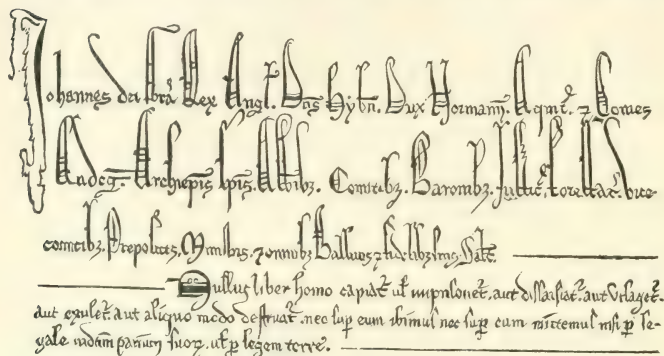 Johannes dei gra Rex Angl. Dns Hybn. Dux Normann. Aquit. ⁊ Comes
Andeg. Archiepis Epis. Abbibz. Comitibz. Baronibz. Justic. Forestar. Vice-
comitibz. Prepositis. Minisbis. ⁊ omnibz Ballivis ⁊ fidelibz suis Salt.
Nullus liber homo capiat ul imprisonet. aut dissaisiat. aut Utlaget.
aut exulet. aut aliquo modo destruat. nec sup eum ibimus nec sup eum mittemus nisi p le-
gale iudicium parium suorz. ul p legem terre.